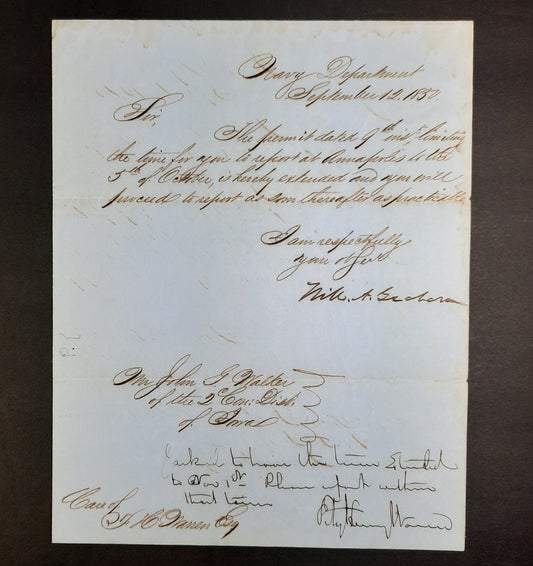 Navy Department
September 12, 1850.
Sir,
The permit dated 9th inst. limiting
the time for you to report at Annapolis to the
5th of October, is hereby extended and you will
proceed to report as soon thereafter as practicable
I am respectfully
your ob Serv
Will. A. Graham
Mr John G Walker
of the 2d Con: Dist:
of Iowa
I asked to have the time Extended
to Nov 1st. Please report within
that time
Fitz Henry Warren
Care of
F H Warren Esq